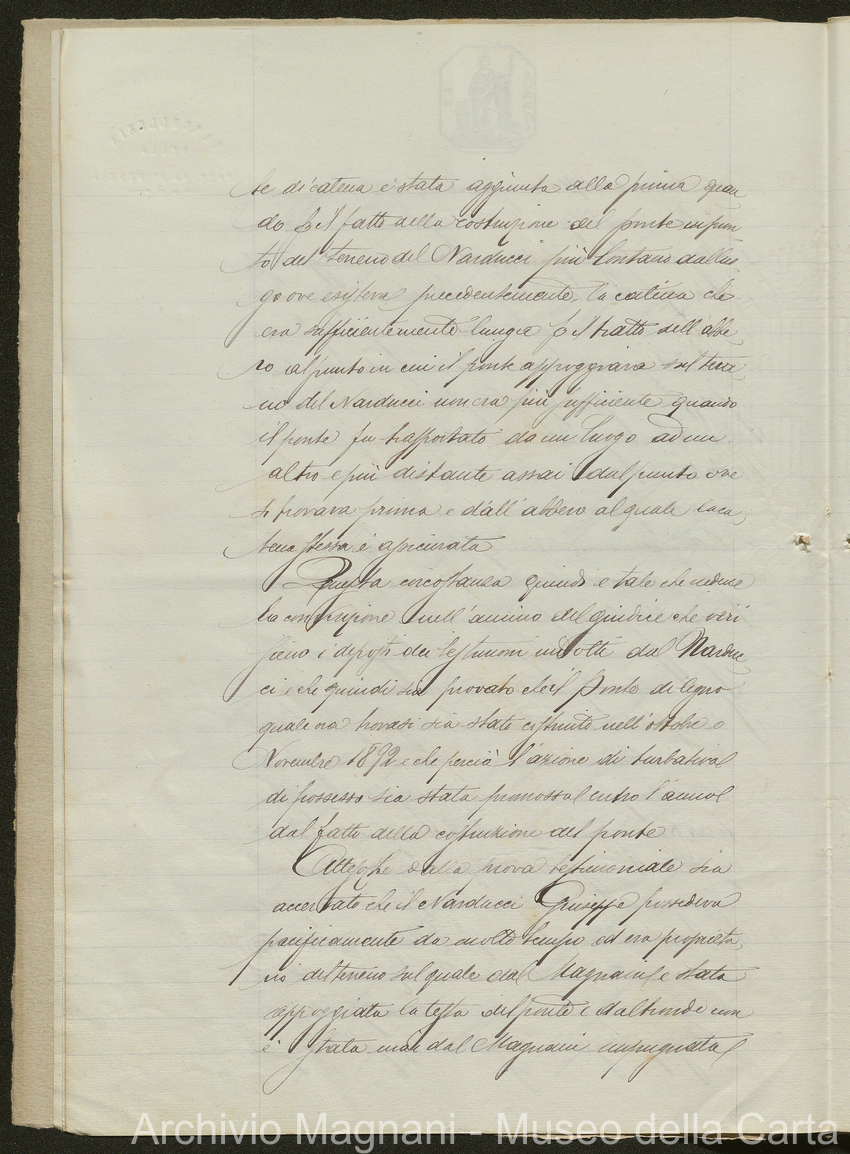 te di catena è stata aggiunta alla prima quan
do p il fatto della costruzione del ponte in pun
to del terreno del Narducci più lontano dal luo
go ove esisteva precedentemente, la catena che
era sufficientemente lunga p il tratto dell'albe,
ro al punto in cui il ponte appoggiava sul terre
no del Narducci non era più sufficiente quando
il ponte fu trasportato da un luogo ad un
altro e più distante assai dal punto ove
si trovava prima e dall'albero al quale la ca,
tena stessa è assicurata
Questa circostanza quindi e tale che induce
la convinzione nell'animo del giudice che veri
siano i deposti dei testimoni indotti dal Narduc,
ci e che quindi sia provato che il Ponte di legno
quale ora trovasi sia stato costruito nell'ottobre o
Novembre 1892 e che perciò l'azione di turbativa
di possesso sia stata promossa entro l'anno
dal fatto della costruzione del ponte
Attesoche dalla prova testimoniale sia
accertato che il Narducci Giuseppe possedeva
pacificamente da molto tempo ed era proprieta,
rio del terreno sul quale dal Magnani e stata
appoggiata la testa del ponte e d'altronde non
è stata mai dal Magnani impugnata
Archivio Magnani - Museo della Carta